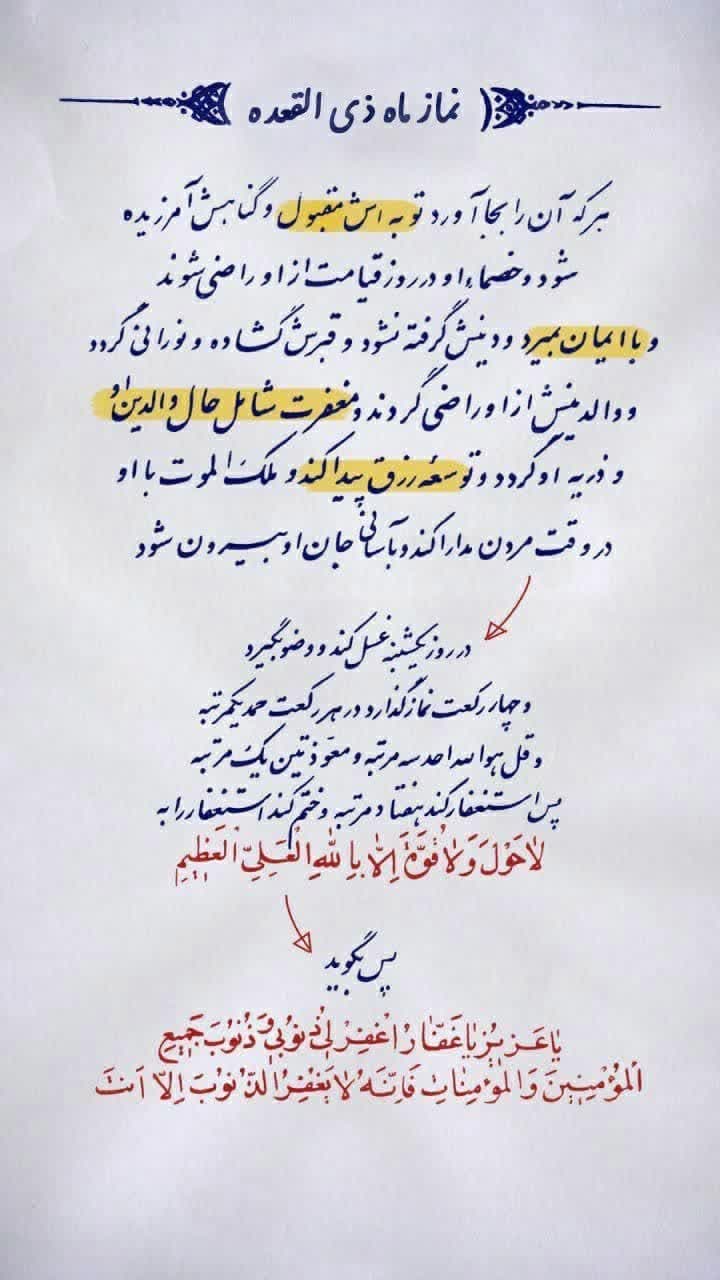 نماز ماه ذی القعده
هرکه آن را بجا آورد توبه اش مقبول و گناهش آمرزیده
شود و خصماء او در روز قیامت از او راضی شوند
و با ایمان بمیرد و دینش گرفته نشود و قبرش گشاده و نورانی گردد
و والدینش از او راضی گردند و مغفرت شامل حال والدین او
و ذریه او گردد و توسعۀ رزق پیدا کند و ملک الموت با او
در وقت مردن مدارا کند و بآسانی جان او بیرون شود
در روز یکشنبه غسل کند و وضو بگیرد
و چهار رکعت نماز گذارد در هر رکعت حمد یکمرتبه
و قل هو الله احد سه مرتبه و معوّذتین یک مرتبه
پس استغفار کند هفتاد مرتبه و ختم کند استغفار را به
لاٰ حَوْلَ وَ لاٰ قُوَّةَ اِلاّٰ بِاللّٰهِ الْعَلِيِّ الْعَظِيمِ
پس بگوید
یٰا عَزیٖزُ یٰا غَفّٰارُ اغْفِرْ لیٖ ذُنوُبیٖ وَ ذُنوُبَ جَمیٖعِ
الْمُؤْمِنیٖنَ وَ الْمُؤْمِنٰاتِ فَاِنَّهُ لاٰ یَغْفِرُ الذُّنوُبَ اِلاّٰ اَنْتَ